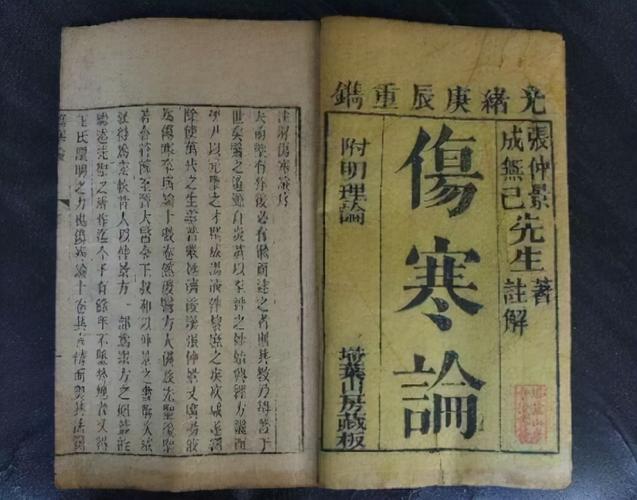 光緒庚辰重鐫
張仲景
成無己
先生
著
註解
傷寒論
附明理論
埽葉山房藏板
註解傷寒論序
夫前聖有作後必有繼而述之者則其教乃得著于
世矣醫之道源自炎黃以至神之妙始興經方繼而
伊尹以元聖之才撰成湯液俾黎庶之疾疢咸遂蠲
除使萬代之生靈普蒙拯濟後漢張仲景又廣湯液
為傷寒卒病論十數卷然後醫方大備茲先聖後聖
若合符節至晉太醫令王叔和以仲景之書撰次成
敘得為完秩昔人以仲景方一部為眾方之祖蓋能
繼述先聖之所作迄今千有餘年不墜於地者又得
王氏闡明之力也傷寒論十卷其言精而奧其法簡